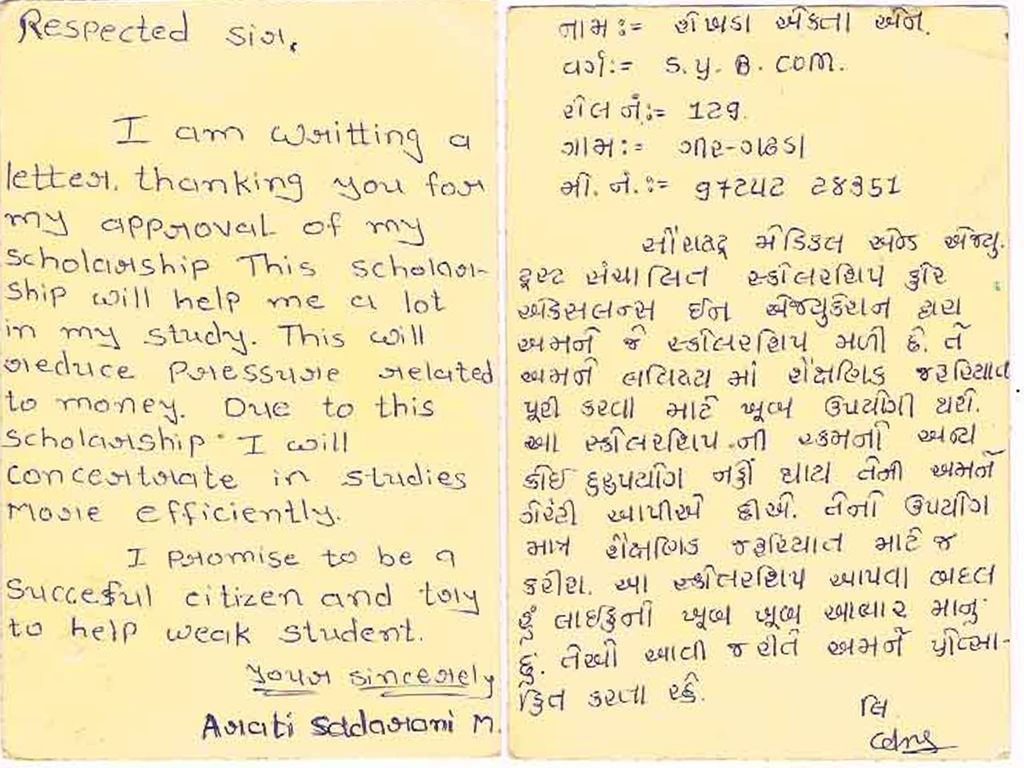 Respected Sir,
I am writting a
letter. thanking you for
my approval of my
scholarship This scholar-
ship will help me a lot
in my study. This will
reduce pressure related
to money. Due to this
scholarship I will
concertrate in studies
more efficiently.
I promise to be a
succesful citizen and try
to help weak student.
Your sincerely
Arati Sadarani M.
નામ := શેખડા એકતા એન.
વર્ગ := S.y.B.COM.
રોલ નં := 129.
ગામ := ગીર-ગઢડા
મો. નં. := ૯૭૨૫૮ ૨૪૩૫૧
સૌરાષ્ટ્ર મેડિકલ એન્ડ એજ્યુ.
ટ્રસ્ટ સંચાલિત સ્કોલરશિપ ફોર
એક્સેલન્સ ઈન એજ્યુકેશન દ્વારા
અમને જે સ્કોલરશિપ મળી છે. તે
અમને ભવિષ્ય માં શૈક્ષણિક જરૂરિયાત
પૂરી કરવા માટે ખૂબ ઉપયોગી થશે.
આ સ્કોલરશિપ ની રકમનો અન્ય
કોઈ દુરુપયોગ નહીં થાય તેની અમને
ગેરંટી આપીએ છીએ. તેનો ઉપયોગ
માત્ર શૈક્ષણિક જરૂરિયાત માટે જ
કરીશ. આ સ્કોલરશિપ આપવા બદલ
હું લાઈફનો ખૂબ ખૂબ આભાર માનુ
છું. તેઓ આવી જ રીતે અમને પ્રોત્સા-
હિત કરતા રહે.
લિ